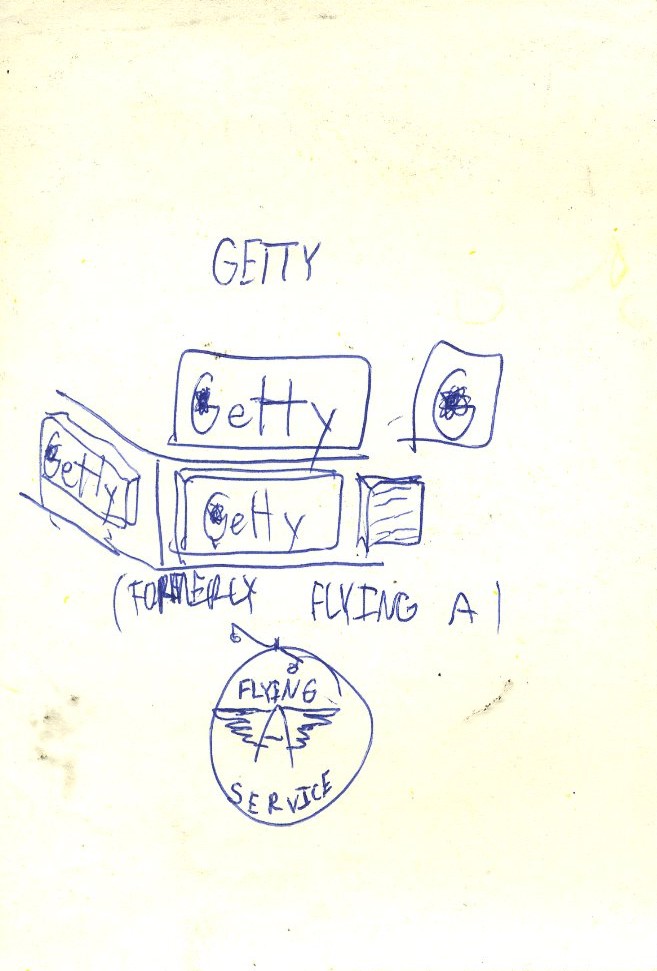 GETTY
Getty
G
Getty
Getty
(FORMERLY FLYING A)
FLYING
A
SERVICE